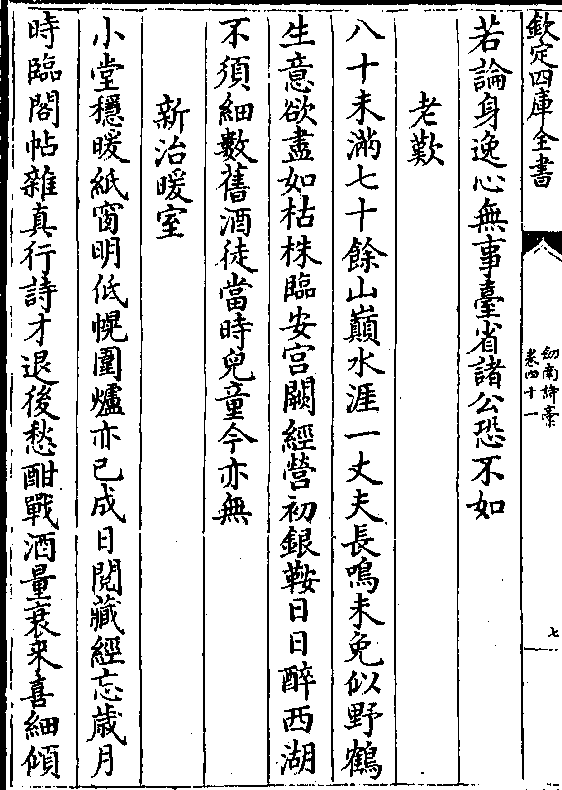 欽定四庫全書
劒南詩藁
卷四十一
七
若論身逸心無事臺省諸公恐不如
老歎
八十未滿七十餘山巔水涯一丈夫長鳴未免似野鶴
生意欲盡如枯株臨安宫闕經營初銀鞍日日醉西湖
不須細數舊酒徒當時兒童今亦無
新治暖室
小堂穩暖紙窗明低幌圍爐亦已成日閱藏經忘歲月
時臨閣帖雜真行詩才退後愁酣戰酒量衰来喜細傾